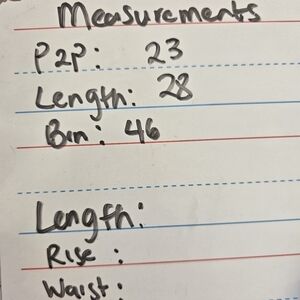 Measurements
P2P: 23
Length: 28
Bin: 46
Length:
Rise:
Waist: